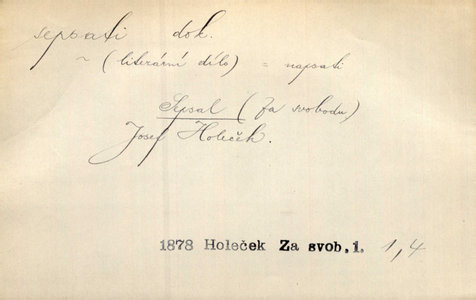 sepsati dok.
~ (literární dílo) = napsati
Sepsal (Za svobodu)
Josef Holeček.
1878 Holeček Za svob, 1. 1,4